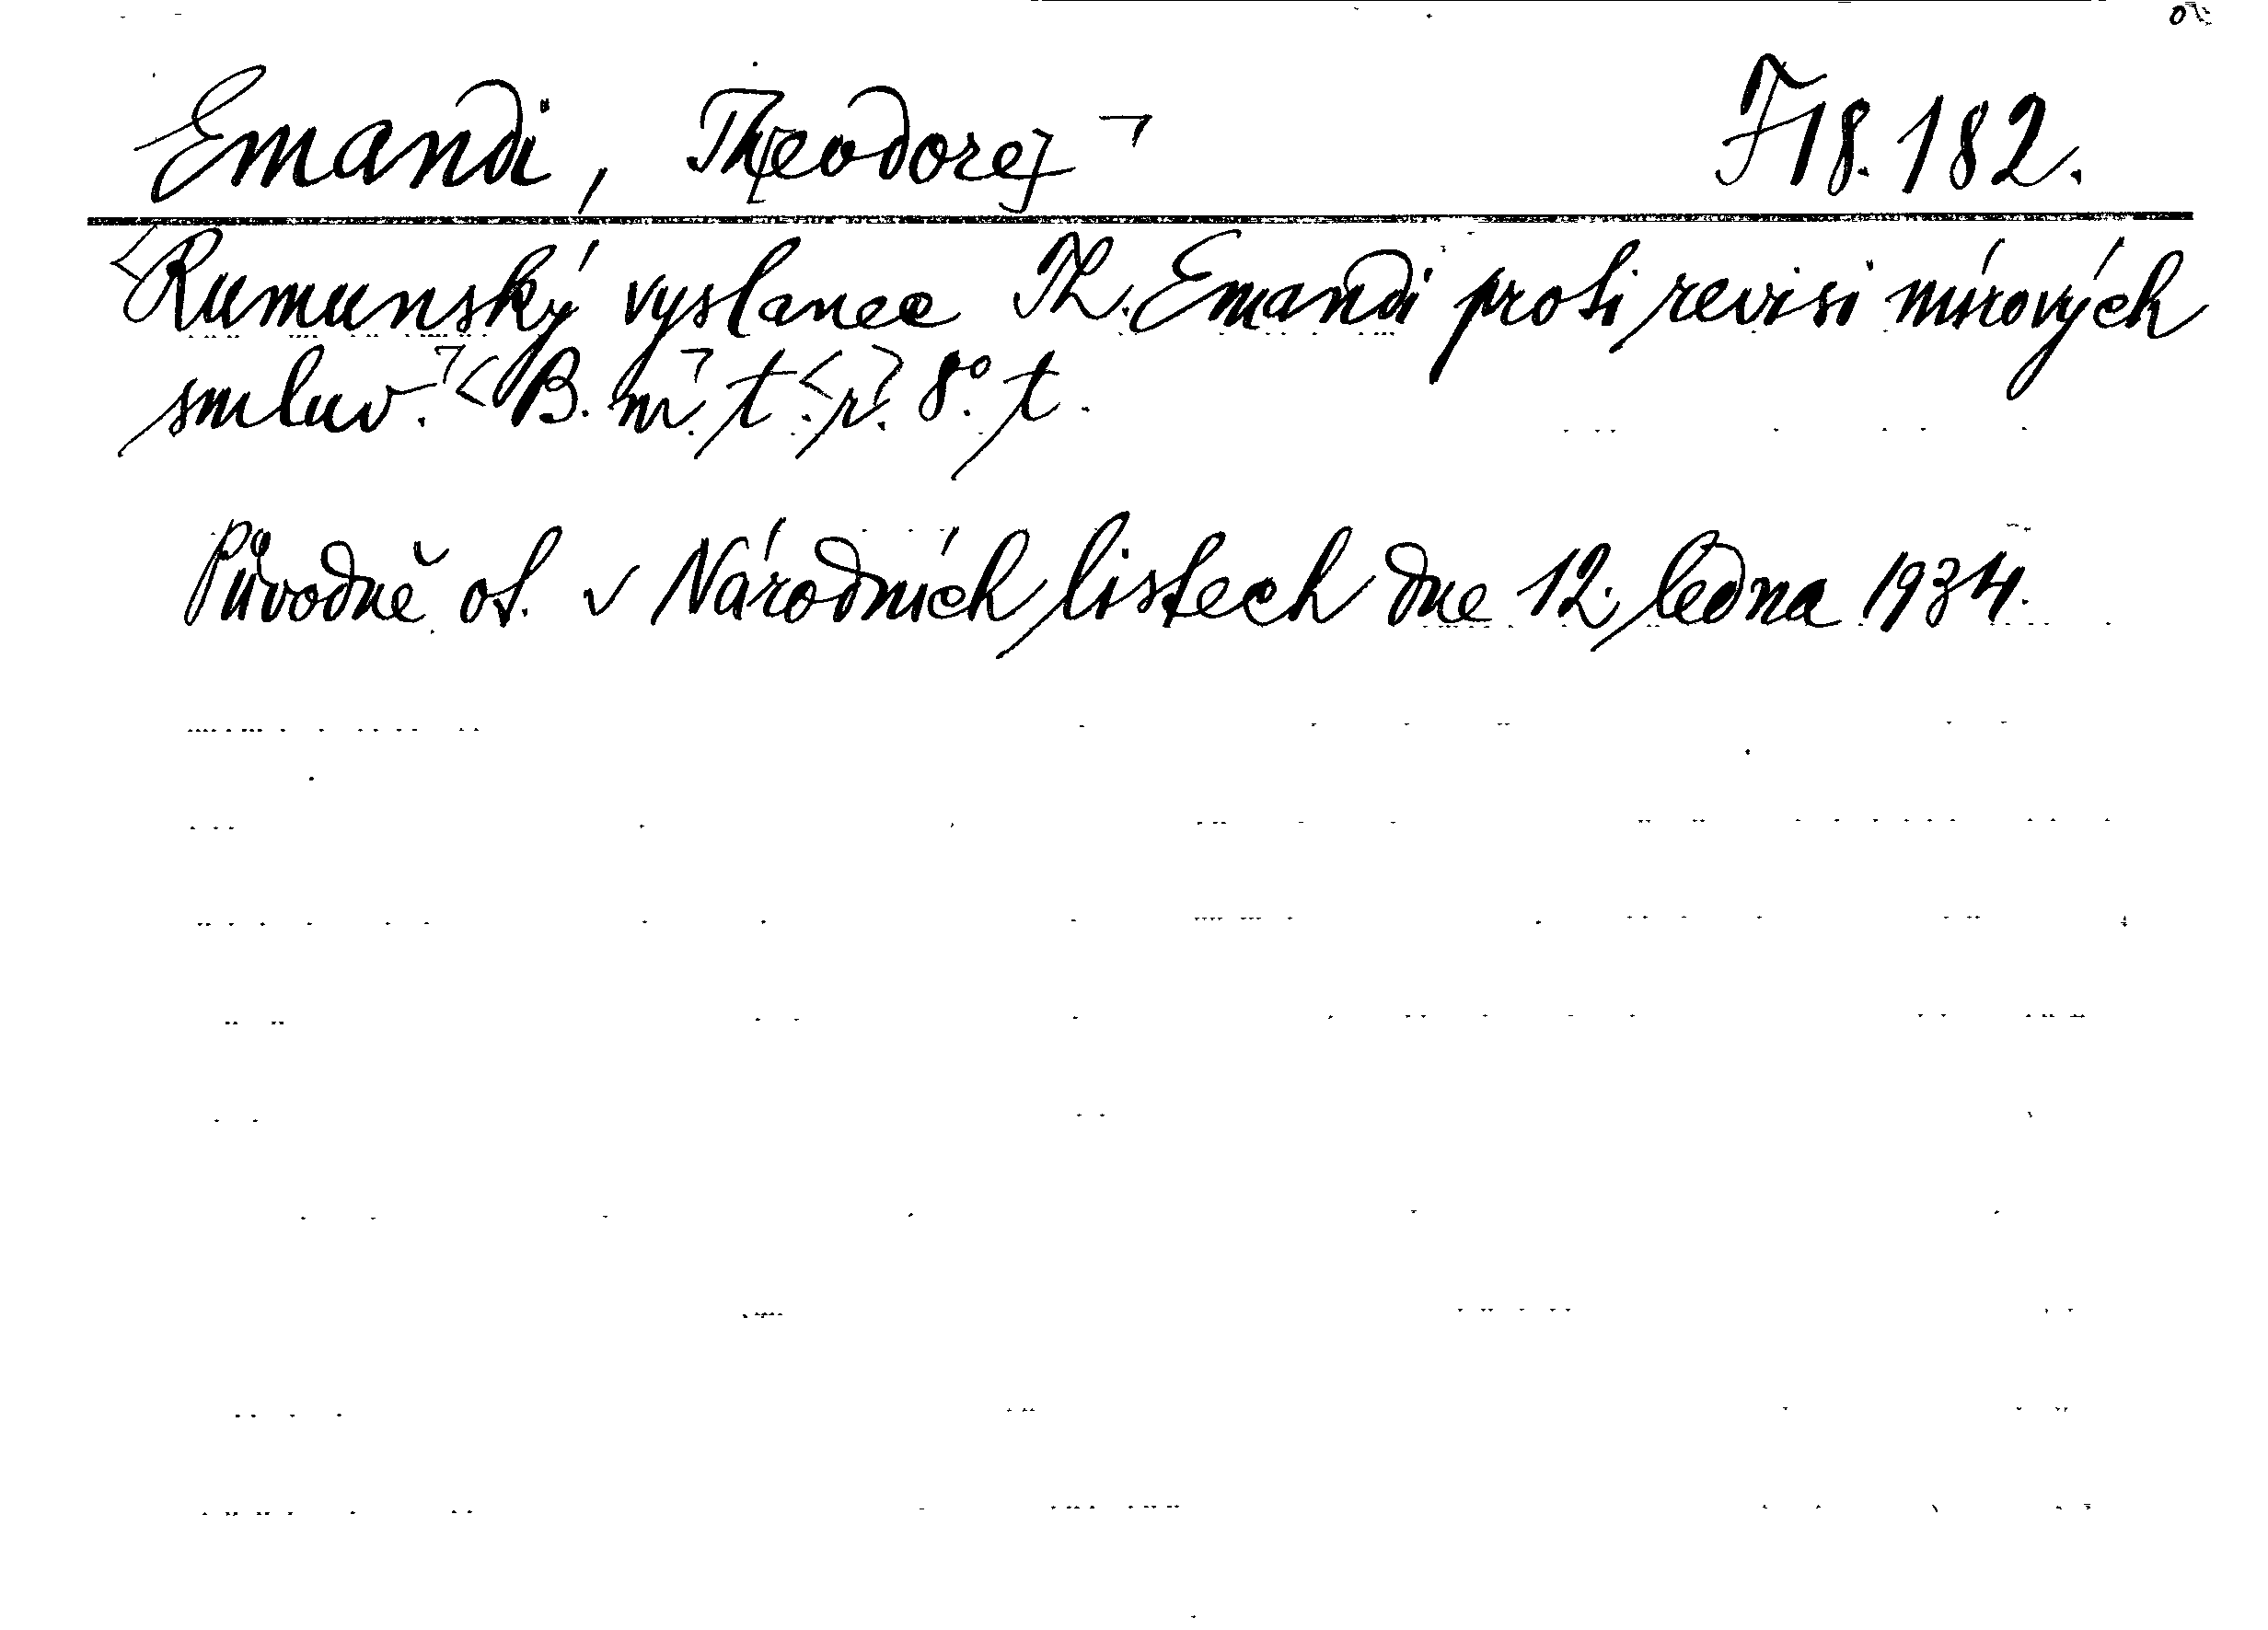 Emandi, Th[eodore] ¬ F 18.182.
<Rumunský vyslanec Th. Emandi proti revisi mírových
smluv.¬ <B. m¬. t.<r>. 8°. t.
Původně ot. v Národních listech dne 12. ledna 1934.